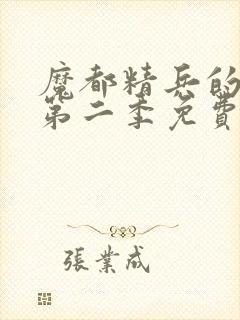 魔都精兵的
第二季免費
張業成